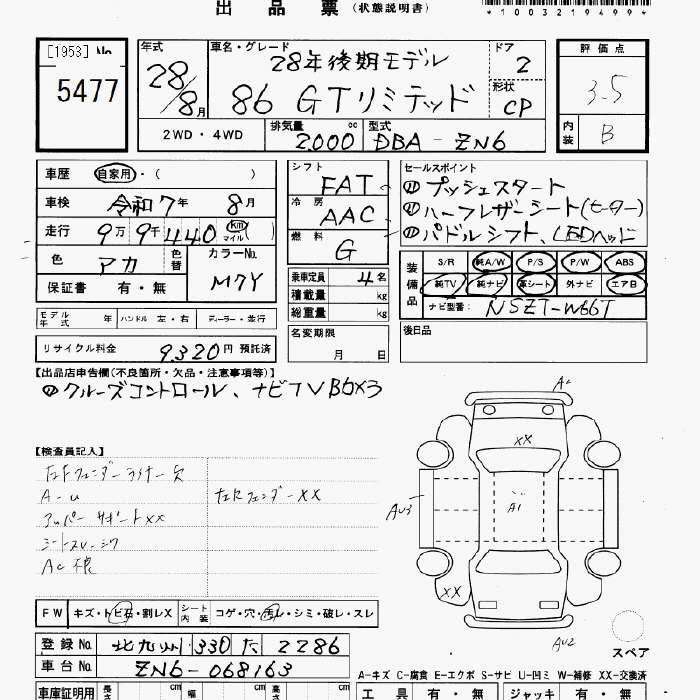 出品票 (状態説明書)
*1003219499*
[1953] No. 5477
年式 28年/8月
車名・グレード 28年後期モデル
86 GTリミテッド
ドア 2
形状 CP
評価点 3.5
内装 B
2WD・4WD
排気量 2000 cc
型式 DBA-ZN6
車歴 自家用・( )
車検 令和7年 8月
走行 9万9千440 km マイル
色 アカ 色替
カラーNo. M7Y
保証書 有・無
シフト FAT
冷房 AAC
燃料 G
乗車定員 4名
積載量 kg
総重量 kg
セールスポイント
①プッシュスタート
②ハーフレザーシート(ヒーター)
③パドルシフト、LEDヘッド
装備品 S/R 純A/W P/S P/W ABS
純TV 純ナビ 革シート 外ナビ エアB
ナビ型番: NSZT-W66T
モデル年式 年 ハンドル 左・右 ディーラー・並行
名変期限 月 日
後日品
リサイクル料金 9,320円 預託済
【出品店申告欄(不良箇所・欠品・注意事項等)】
クルーズコントロール、ナビTV
【検査員記入】
左Fフェンダーライナー欠
A-U
左Rフェンダー XX
アッパーサポートXX
A2
XX
A1
AU3
XX
AU2
スペア
FW キズ・トビ石・割レX シート内装 コゲ・穴・汚レ・シミ・破レ・スレ
登録No. 北九州 330 た 2286
車台No. ZN6-068163
A-キズ C-腐食 E-エクボ S-サビ U-凹ミ W-補修 XX-交換済
車庫証明用 長さ cm 幅 cm 高さ cm
工具 有・無 ジャッキ 有・無